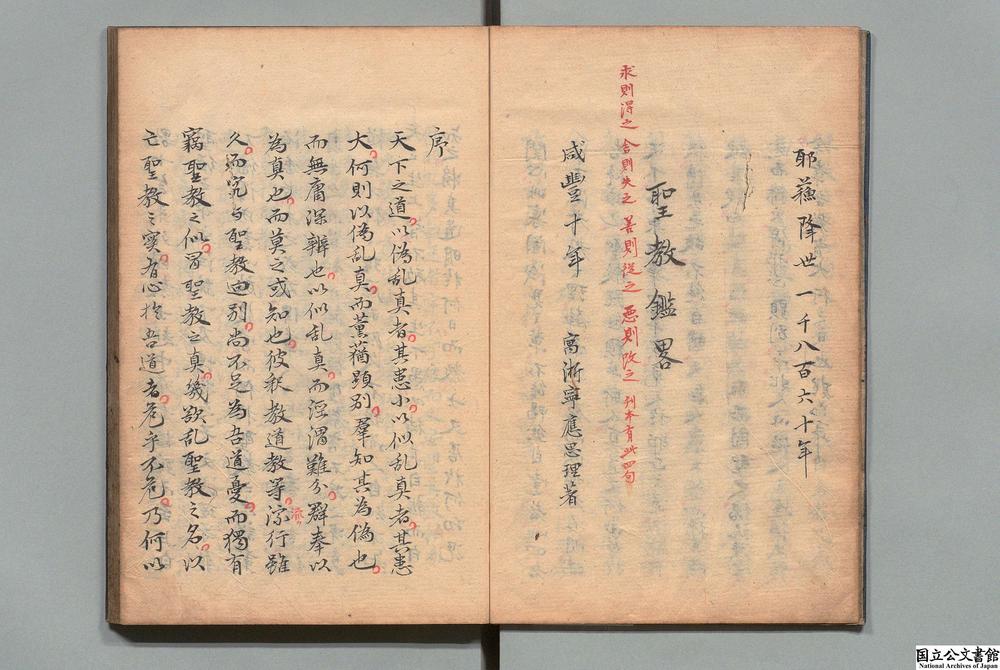 耶蘇降世一千八百六十年
聖教鑑畧
求則得之舍則失之善則從之惡則改之 刊本有此四句
咸豐十年 寓浙寧應思理著
序
天下之道以偽乱真者其患小以似乱真者其患
大何則以偽乱真而薰蕕顕别羣知其為偽也
而無庸深辨也以似乱真而涇渭難分群奉以
為真也而莫之或知也彼釈教道教等宗行雖
派
久而究与聖教逈别尚不足為吾道憂而獨有
竊聖教之似冒聖教之真幾欲乱聖教之名以
亡聖教之实者心於吾道者危乎不危乃何以
国立公文書館
National Archives of Japan